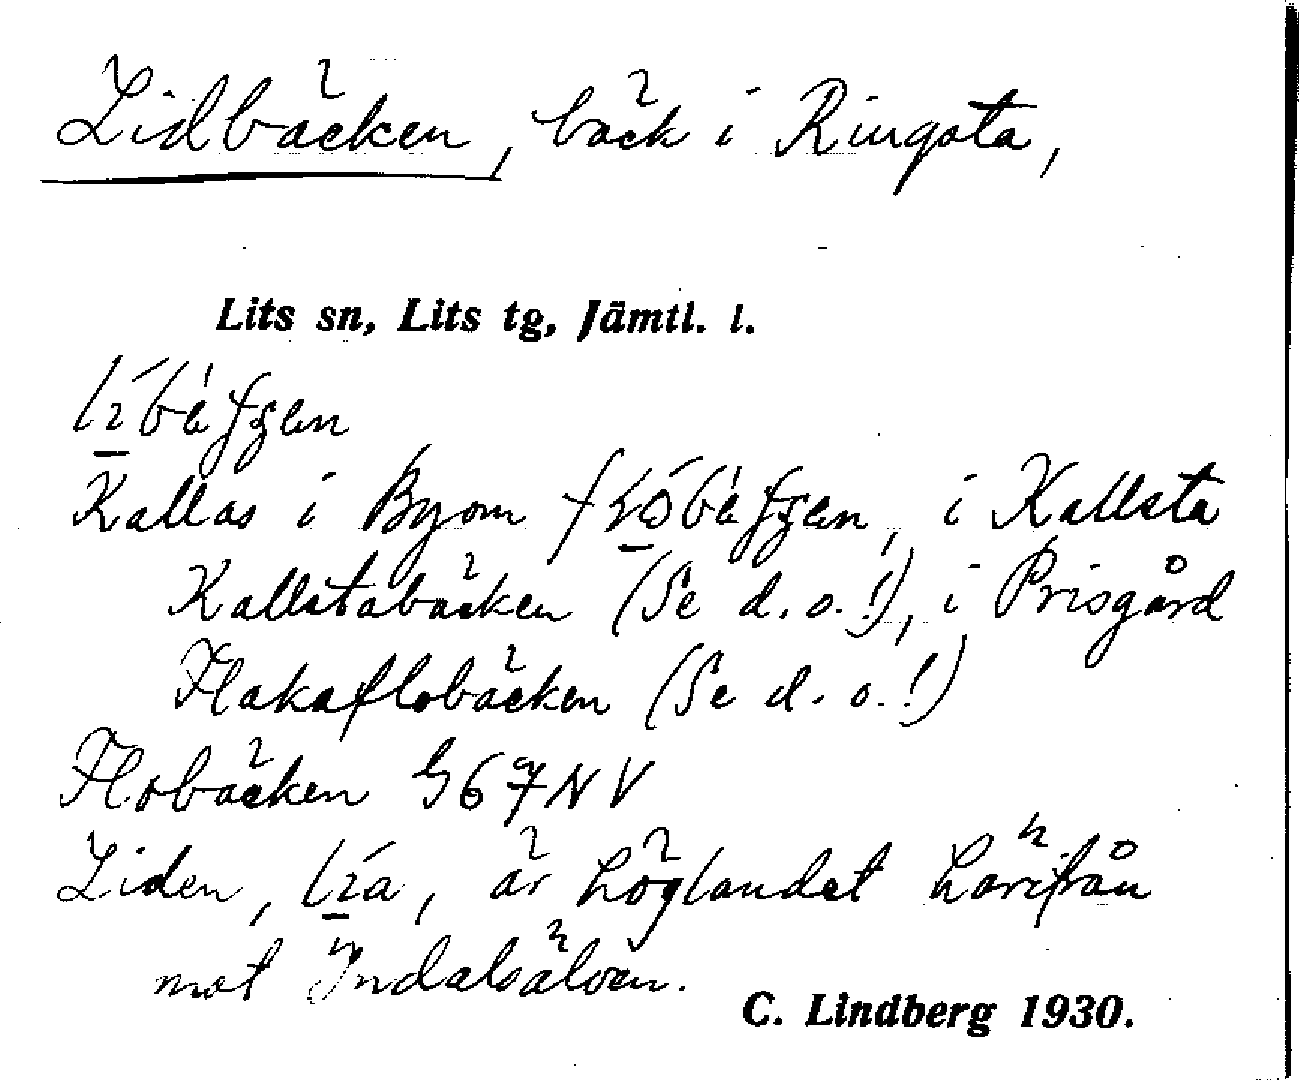 Lidbäcken, bäck i Ringsta,
Lits sn, Lits tg, Jämtl. l.
Kallas i Byom i Kallsta
Kallstabäcken (Se d. o.!), i Prisgård
Flakaflobäcken (Se d. o.!)
Flobäcken G67NV
Liden, är höglandet härifrån
mot Indalsälven.
C. Lindberg 1930.